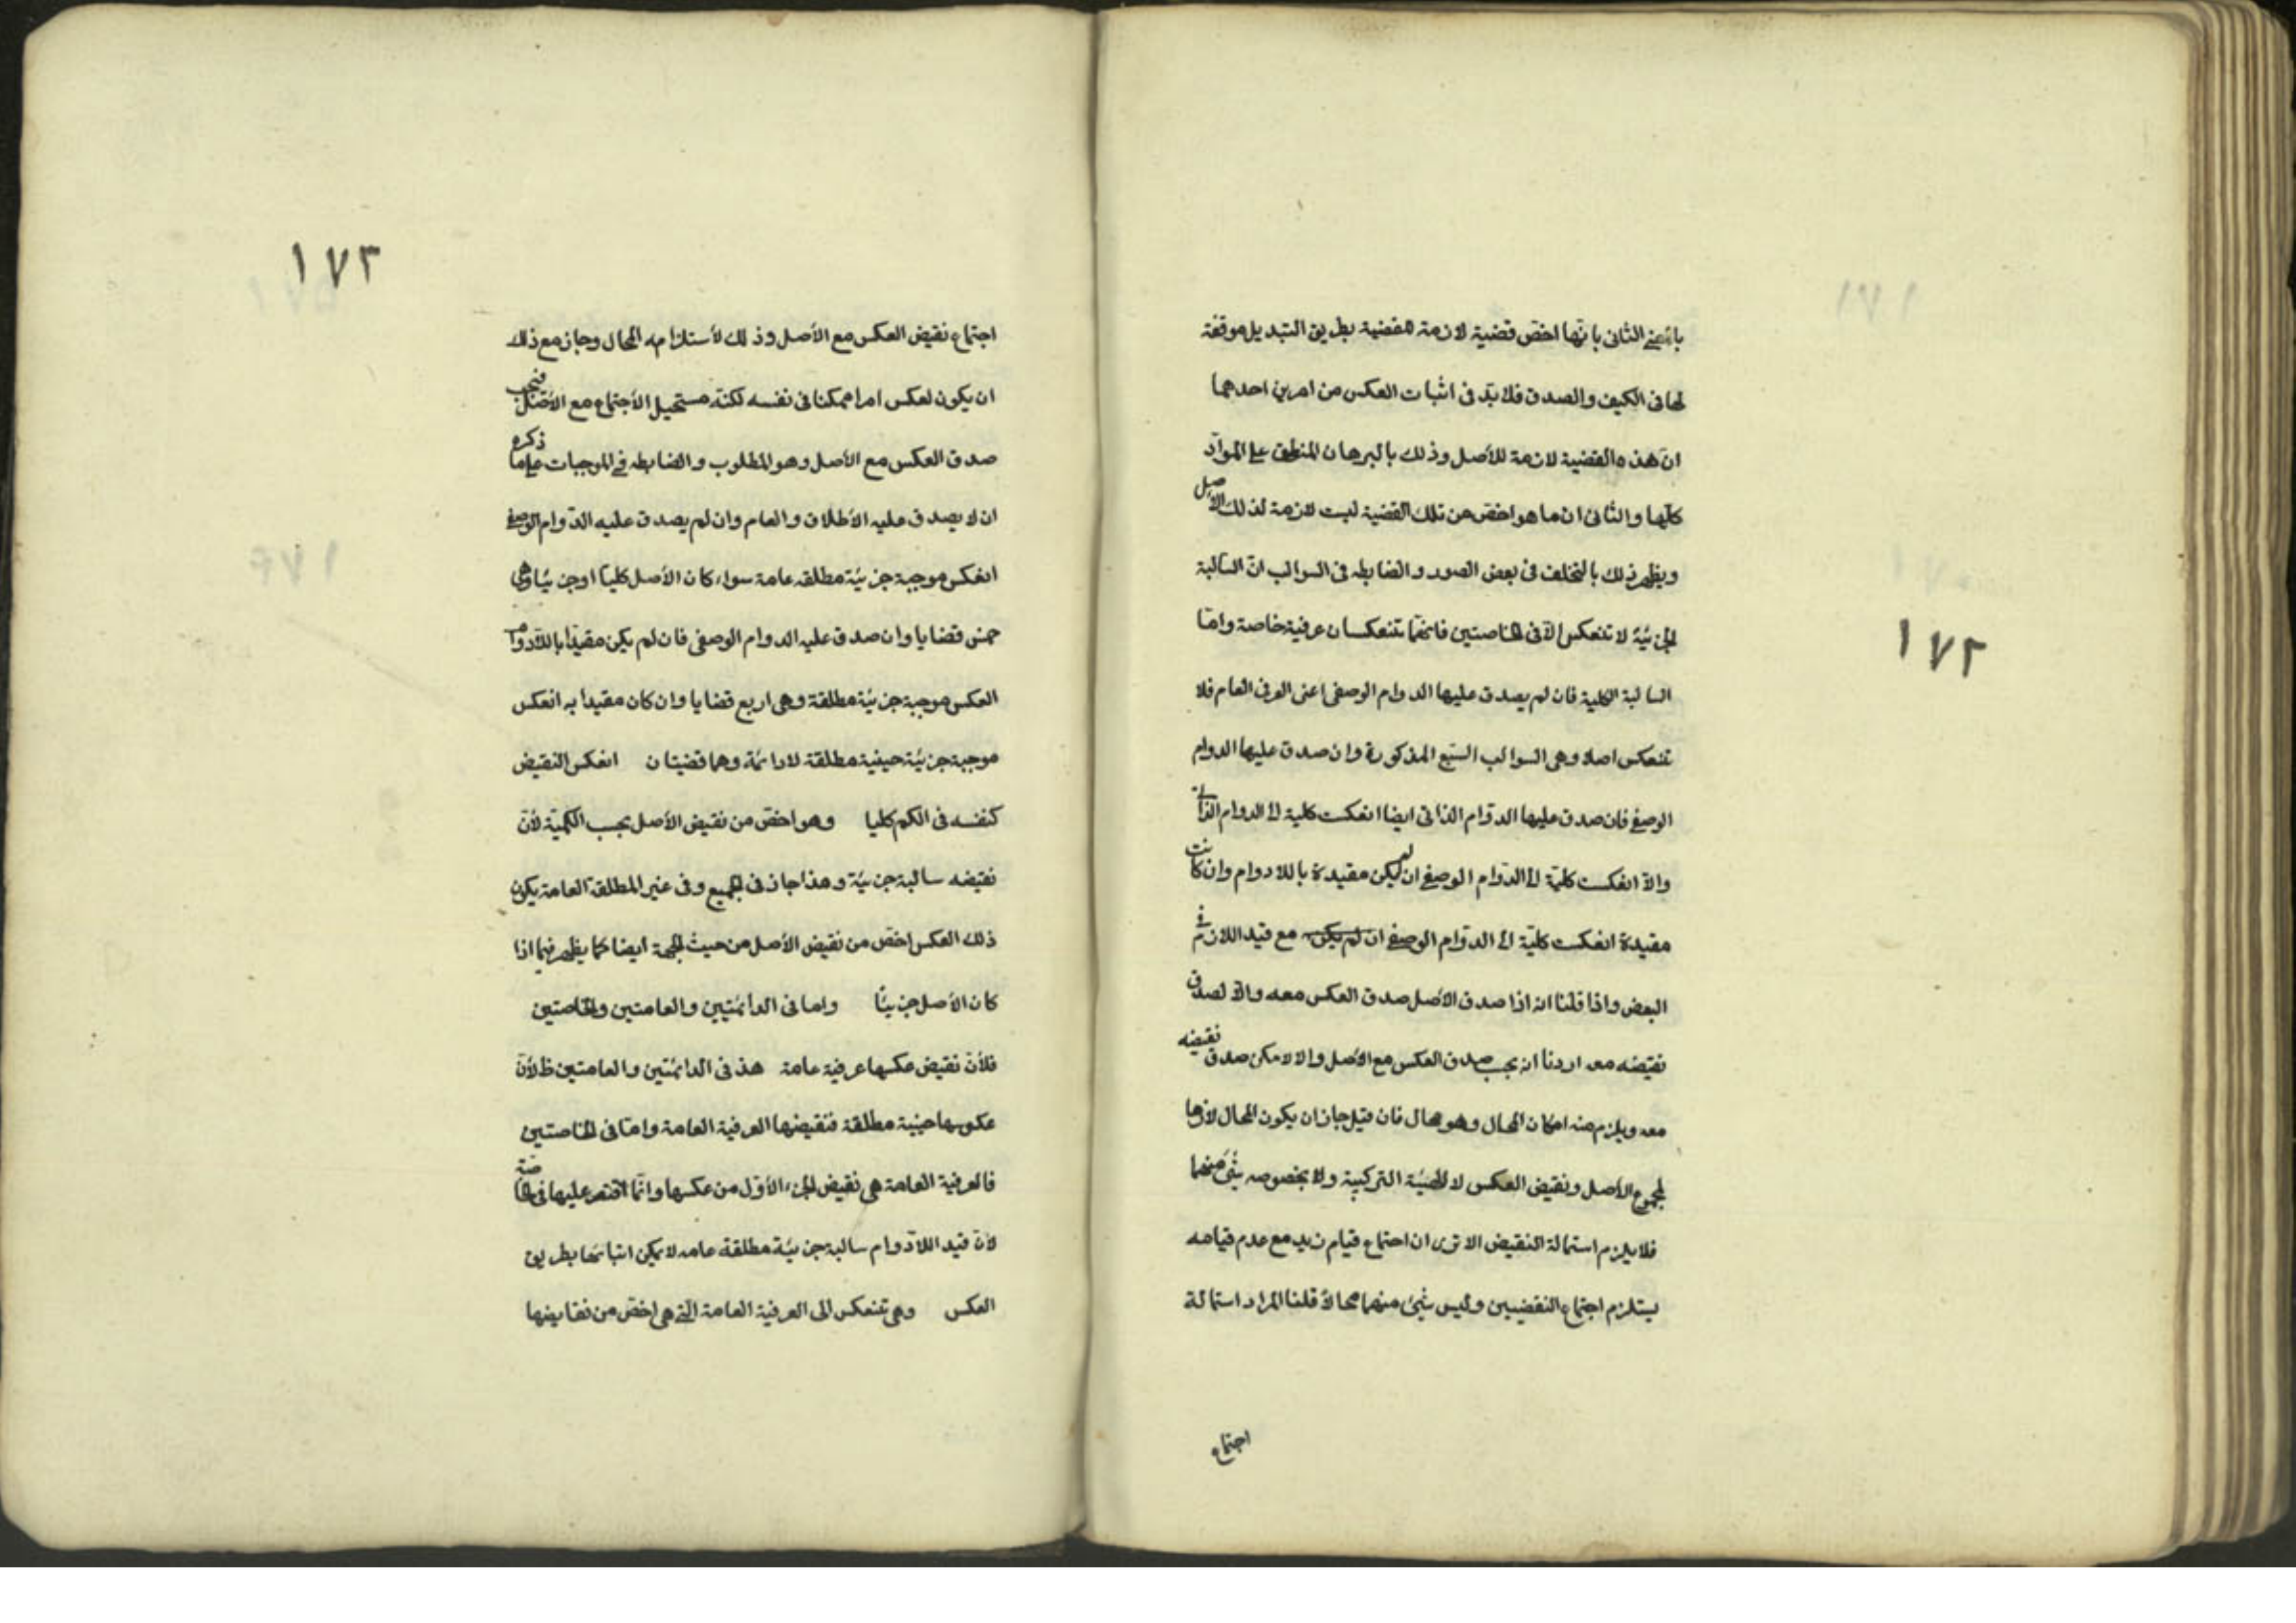 ١٧٢
بالمعنى الثانى بانها اخص قضية لازمة للقضية بطريق التبديل موفقة
لها فى الكيف والصدق فلا بد فى اثبات العكس من امرين احدهما
ان هذه القضية لازمة للأصل وذلك بالبرهان المنطبق على المواد
كلها والثانى ان ما هو اخص من تلك القضية ليست لازمة لذلك الاصل
ويظهر ذلك بالتخلف فى بعض الصور والضابطه فى السوالب ان السالبة
الجزئية لا تنعكس الا فى الخاصتين فانهما تنعكسان عرفية خاصة واما
السالبة الكلية فان لم يصدق عليها الدوام الوصفى اعنى العرفى العام فلا
تنعكس اصلا وهى السوالب السبع المذكورة وان صدق عليها الدوام
الوصفى فان صدق عليها الدوام الذاتى ايضا انعكست كلية الى الدوام الذاتى
والا انعكست كلية الى الدوام الوصفى ان لم يكن مقيدة باللادوام وان كانت
مقيدة انعكست كلية الى الدوام الوصفى ان لم يكن مع قيد اللادوام فى
البعض واذا قلنا انه اذا صدق الأصل صدق العكس معه والا لصدق
نقيضه معه اردنا انه يجب صدق العكس مع الأصل والا لامكن صدق نقيضه
معه ويلزم منه امكان المحال وهو محال فان قيل جاز ان يكون المحال لازما
لمجموع الأصل ونقيض العكس لا للهيئة التركيبية ولا بخصوصه شئ منهما
فلا يلزم استحالة النقيض الا ترى ان اجتماع قيام زيد مع عدم قيامه
يستلزم اجتماع النقضيين وليس شئ منهما محالا قلنا المراد استحالة
اجتماع
١٧٣
اجتماع نقيض العكس مع الأصل وذلك لأستلزامه المحال وجاز مع ذلك
ان يكون لعكس امرا ممكنا فى نفسه لكنه مستحيل الأجتماع مع الأصل فيجب
صدق العكس مع الأصل وهو المطلوب والضابطه فى الموجبات على ما ذكره
ان لا يصدق عليه الأطلاق والعام وان لم يصدق عليه الدوام الوصفى
انعكس موجبة جزئية مطلقه عامة سواء كان الأصل كليا او جزئيا وهى
خمس قضايا وان صدق عليه الدوام الوصفى فان لم يكن مقيدا باللادوام
العكس موجبة جزئية مطلقة وهى اربع قضايا وان كان مقيدا به انعكس
موجبة جزئية حينية مطلقة لادائمة وهما قضيتان انعكس النقيض
كنفسه فى الكم كليا وهو اخص من نقيض الأصل بحسب الكمية لأن
نقيضه سالبة جزئية وهذا جاز فى الجميع وفى غير المطلقة العامة يكون
ذلك العكس اخص من نقيض الأصل من حيث الجهة ايضا كما يظهر فيما اذا
كان الأصل جزئيا واما فى الدائمتين والعامتين والخاصتين
فلأن نقيض عكسها عرفية عامة هذ فى الدائمتين والعامتين ظ لأن
عكوسها حينية مطلقة فنقيضها العرفية العامة واما فى الخاصتين
فالعرفية العامة هى نقيض الجزء الأول من عكسها وانما اقتصر عليها فى الخاصة
لأن قيد اللادوام سالبة جزئية مطلقة عامه لا يمكن اثباتها بطريق
العكس وهى تنعكس الى العرفية العامة التى هى اخص من نقايضها